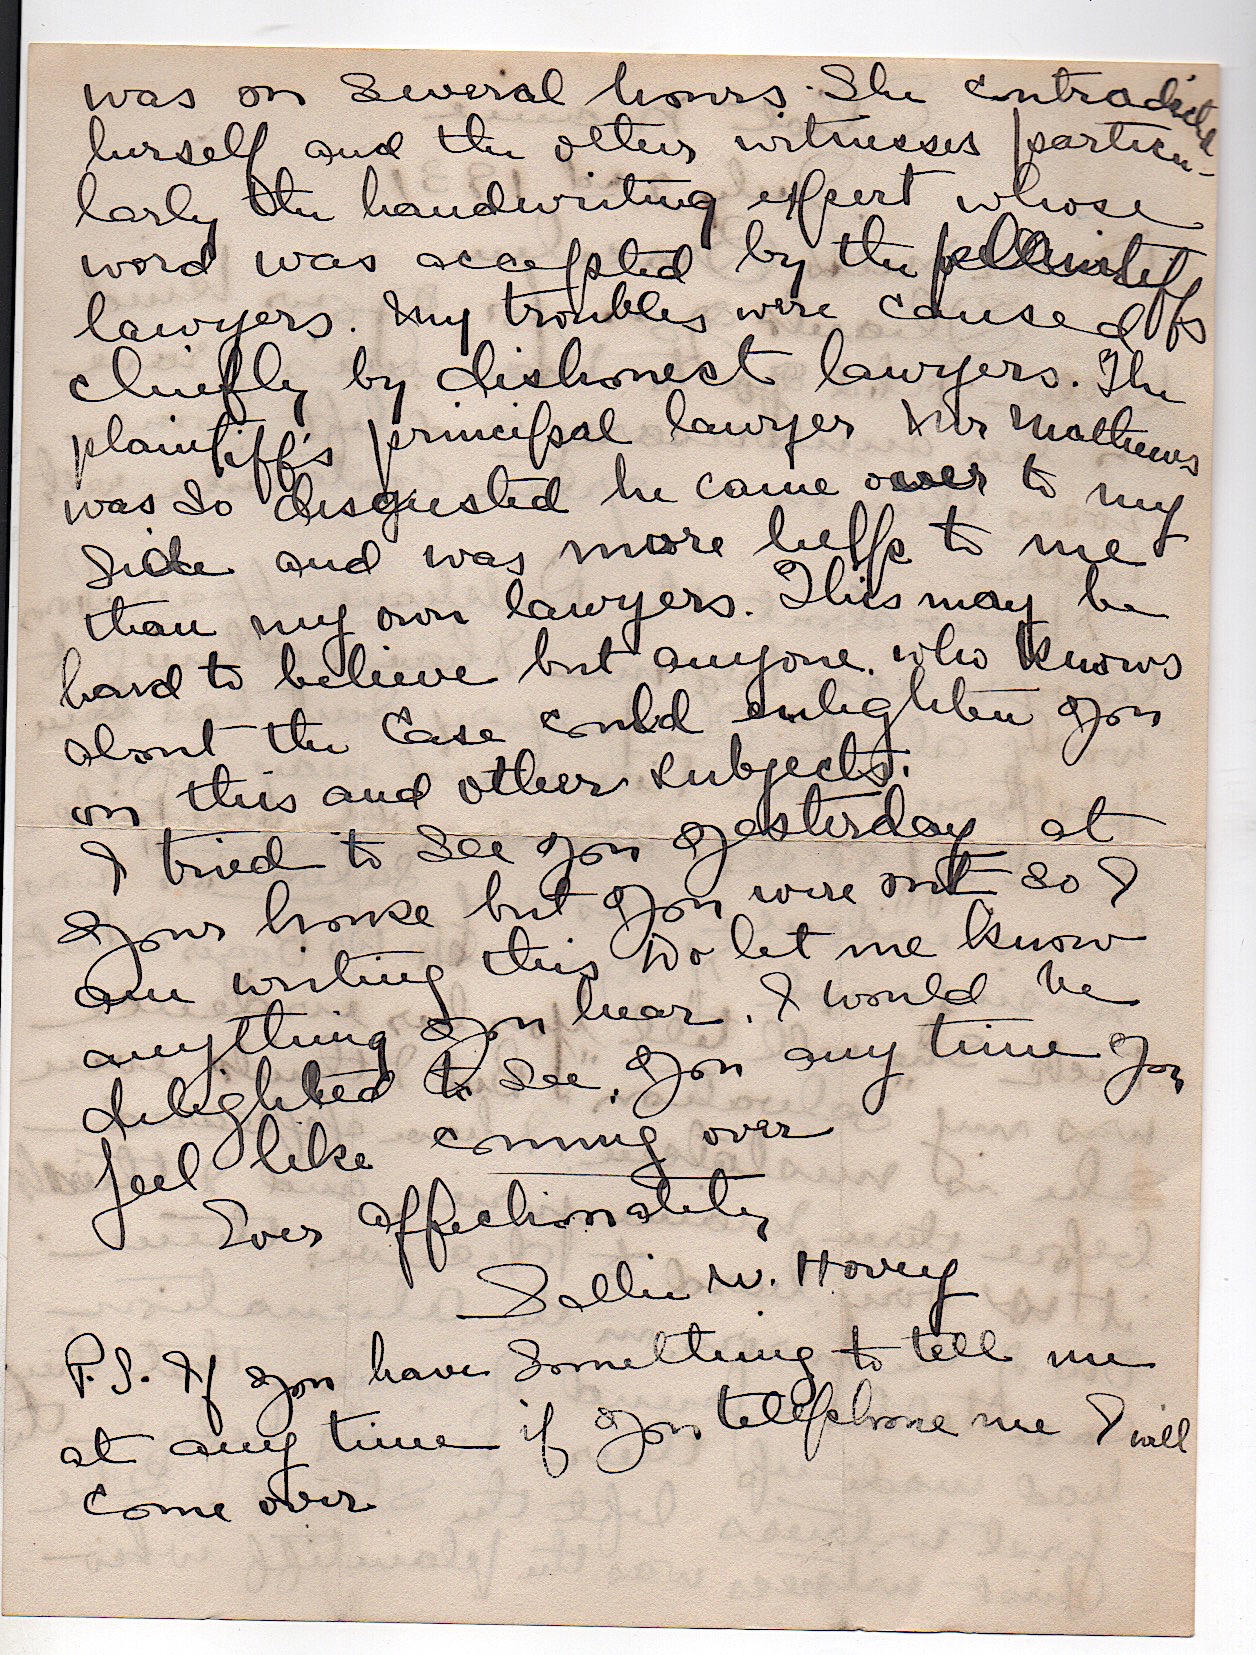 was on several hours. She contradicted
herself and the other witnesses particu-
larly the handwriting expert whose
word was accepted by the plaintiffs
lawyers. My troubles were caused
chiefly by dishonest lawyers. The
plaintiff's principal lawyer Mr Mathews
was so disgusted he came over to my
side and was more help to me
than my own lawyers. This may be
hard to believe but anyone who knows
about the case could enlighten you
on this and other subjects.
I tried to see you yesterday at
your house but you were out so I
am writing this Do let me know
anything you hear. I would be
delighted to see you any time you
feel like coming over
Ever affectionately
Sallie W. Hovey
P.S. If you have something to tell me
at any time if you telephone me I will
come over